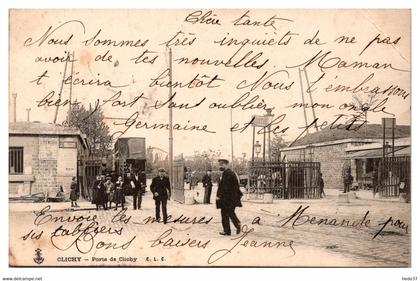 Chère tante
Nous sommes très inquiets de ne pas
avoir de tes nouvelles, Maman
t'écrira bientôt Nous t'embrassons
bien fort sans oublier mon oncle
Germaine et les petits
Envoie les mesures à Menande pour
ses tabliers
Bons baisers Jeanne
CLICHY - Porte de Clichy E. L. D.